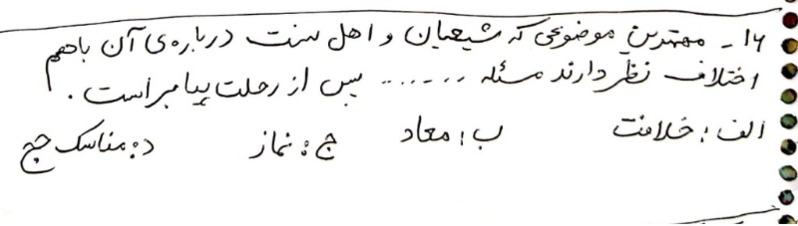 ۱۶ - مهمترین موضوعی که شیعیان و اهل سنت درباره‌ی آن باهم
اختلاف نظر دارند مسئله ....... پس از رحلت پیامبر است.
الف: خلافت ب: معاد ج: نماز د: مناسک حج